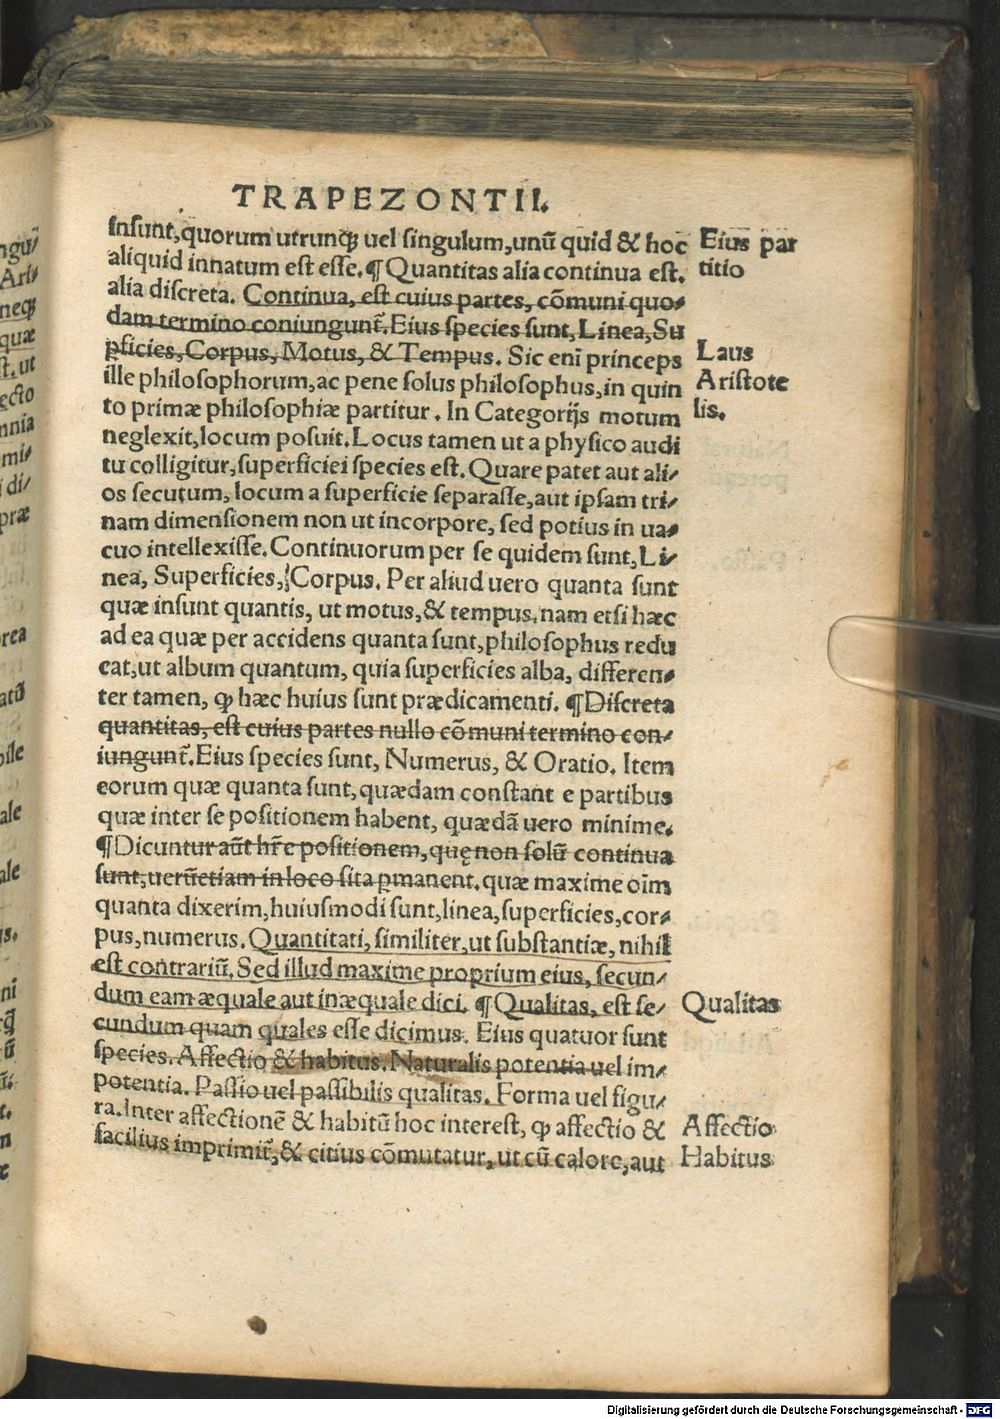 TRAPEZONTII.
insunt, quorum utrunq; uel singulum, unū quid & hoc
Eius par
aliquid innatum est esse. ¶ Quantitas alia continua est.
titio
alia discreta. Continua, est cuius partes, cōmuni quo-
dam termino coniungunt̃. Eius species sunt, Linea, Su
ꝑficies, Corpus, Motus, & Tempus. Sic eni princeps
Laus
ille philosophorum, ac pene solus philosophus, in quin
Aristote
to primæ philosophiæ partitur. In Categorijs motum
lis.
neglexit, locum posuit. Locus tamen ut a physico audi
tu colligitur, superficiei species est. Quare patet aut ali-
os secutum, locum a superficie separasse, aut ipsam tri-
nam dimensionem non ut incorpore, sed potius in ua-
cuo intellexisse. Continuorum per se quidem sunt, Li-
nea, Superficies, Corpus. Per aliud uero quanta sunt
quæ insunt quantis, ut motus, & tempus. nam etsi hæc
ad ea quæ per accidens quanta sunt, philosophus redu
cat, ut album quantum, quia superficies alba, differen-
ter tamen, ꝙ hæc huius sunt prædicamenti. ¶ Discreta
quantitas, est cuius partes nullo cōmuni termino con-
iungunt̃. Eius species sunt, Numerus, & Oratio. Item
eorum quæ quanta sunt, quædam constant e partibus
quæ inter se positionem habent, quædā uero minime.
¶ Dicuntur aūt hr̃e positionem, quę non solū continua
sunt, uerūetiam in loco sita ꝑmanent. quæ maxime oim̄
quanta dixerim, huiusmodi sunt, linea, superficies, cor-
pus, numerus. Quantitati, similiter, ut substantiæ, nihil
est contrariū. Sed illud maxime proprium eius, secun-
dum eam æquale aut inæquale dici. ¶ Qualitas, est se-
Qualitas
cundum quam quales esse dicimus. Eius quatuor sunt
species. Affectio & habitus. Naturalis potentia uel im-
potentia. Passio uel passibilis qualitas. Forma uel figu-
ra. Inter affectionē & habitū hoc interest, ꝙ affectio &
Affectio
facilius imprimit̃, & citius cōmutatur, ut cū calore, aut
Habitus
Digitalisierung gefördert durch die Deutsche Forschungsgemeinschaft - DFG